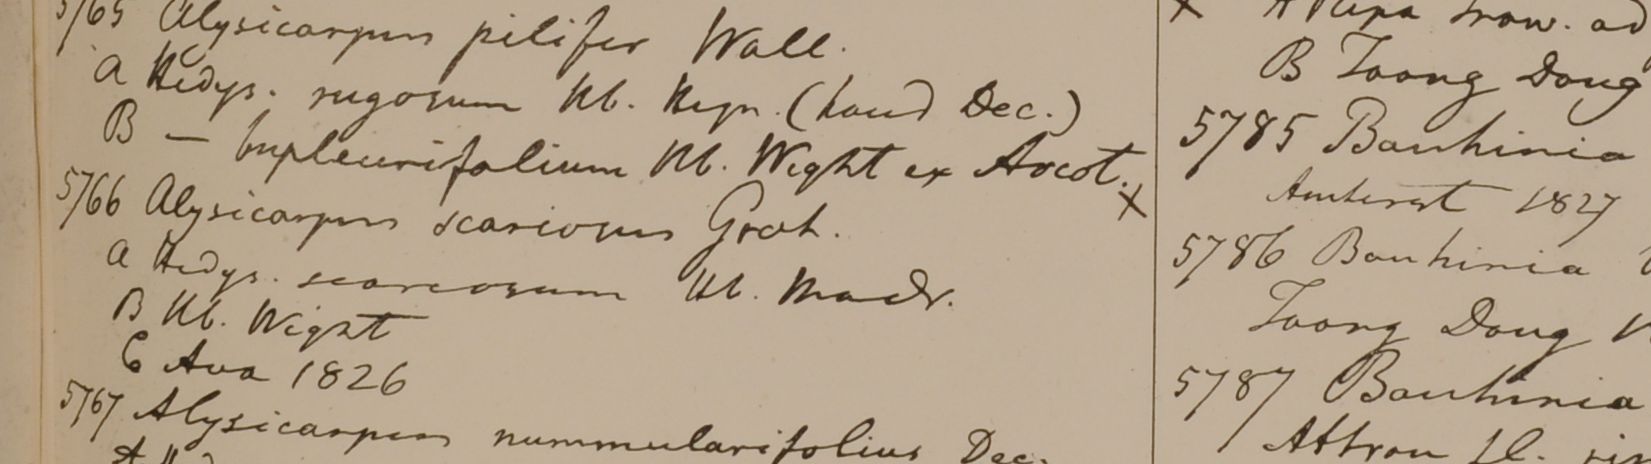 5765 Alysicarpus pilifer Wall.
a Hedys. rugosum Hb. Heyn. (haud Dec.)
B — bupleurifolium Hb. Wight ex Arcot.
5766 Alysicarpus scariosus Grah.
a Hedys. scariosum Hb. Madr.
B Hb. Wight
C Ava 1826
5767 Alysicarpus nummularifolius Dec.
x A Ripa Iraw. ad
B Taong Dong
5785 Bauhinia
x Amherst 1827
5786 Bauhinia
Taong Dong
5787 Bauhinia
Attran fl.